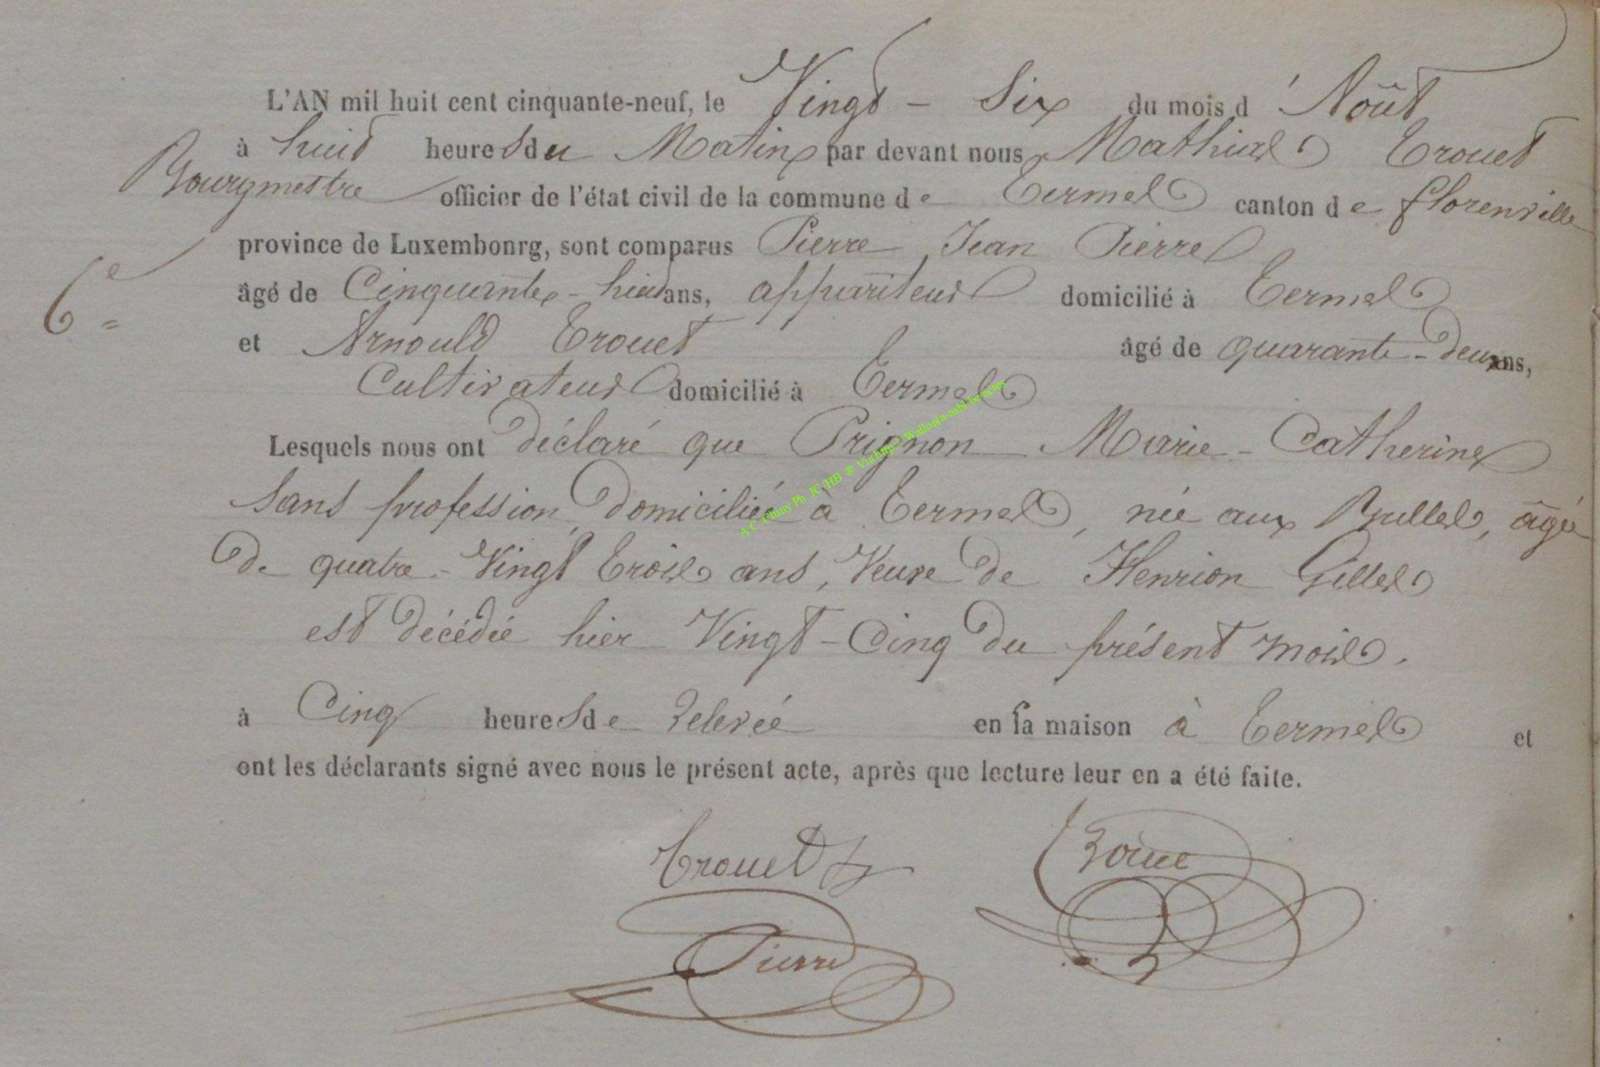 L'AN mil huit cent cinquante-neuf, le Vingt - Six du mois d'Août
à huit heures du Matin par devant nous Mathias Trouet
Bourgmestre officier de l'état civil de la commune de Termes canton de florenville
province de Luxembonrg, sont comparus Pierre Jean Pierre
6e
âgé de Cinquante-huit ans, appariteur domicilié à Termes
et Arnould Trouet âgé de quarante-deux ans,
Cultivateur domicilié à Termes
Lesquels nous ont déclaré que Prignon Marie-Catherine
Sans profession, domiciliée à Termes, née aux Bulles, âgée
de quatre-Vingt trois ans, Veuve de Henrion Gilles
est décédée hier Vingt-Cinq du présent mois.
à Cinq heures de relevée en sa maison à Termes et
ont les déclarants signé avec nous le présent acte, après que lecture leur en a été faite.
Trouet
Pierre